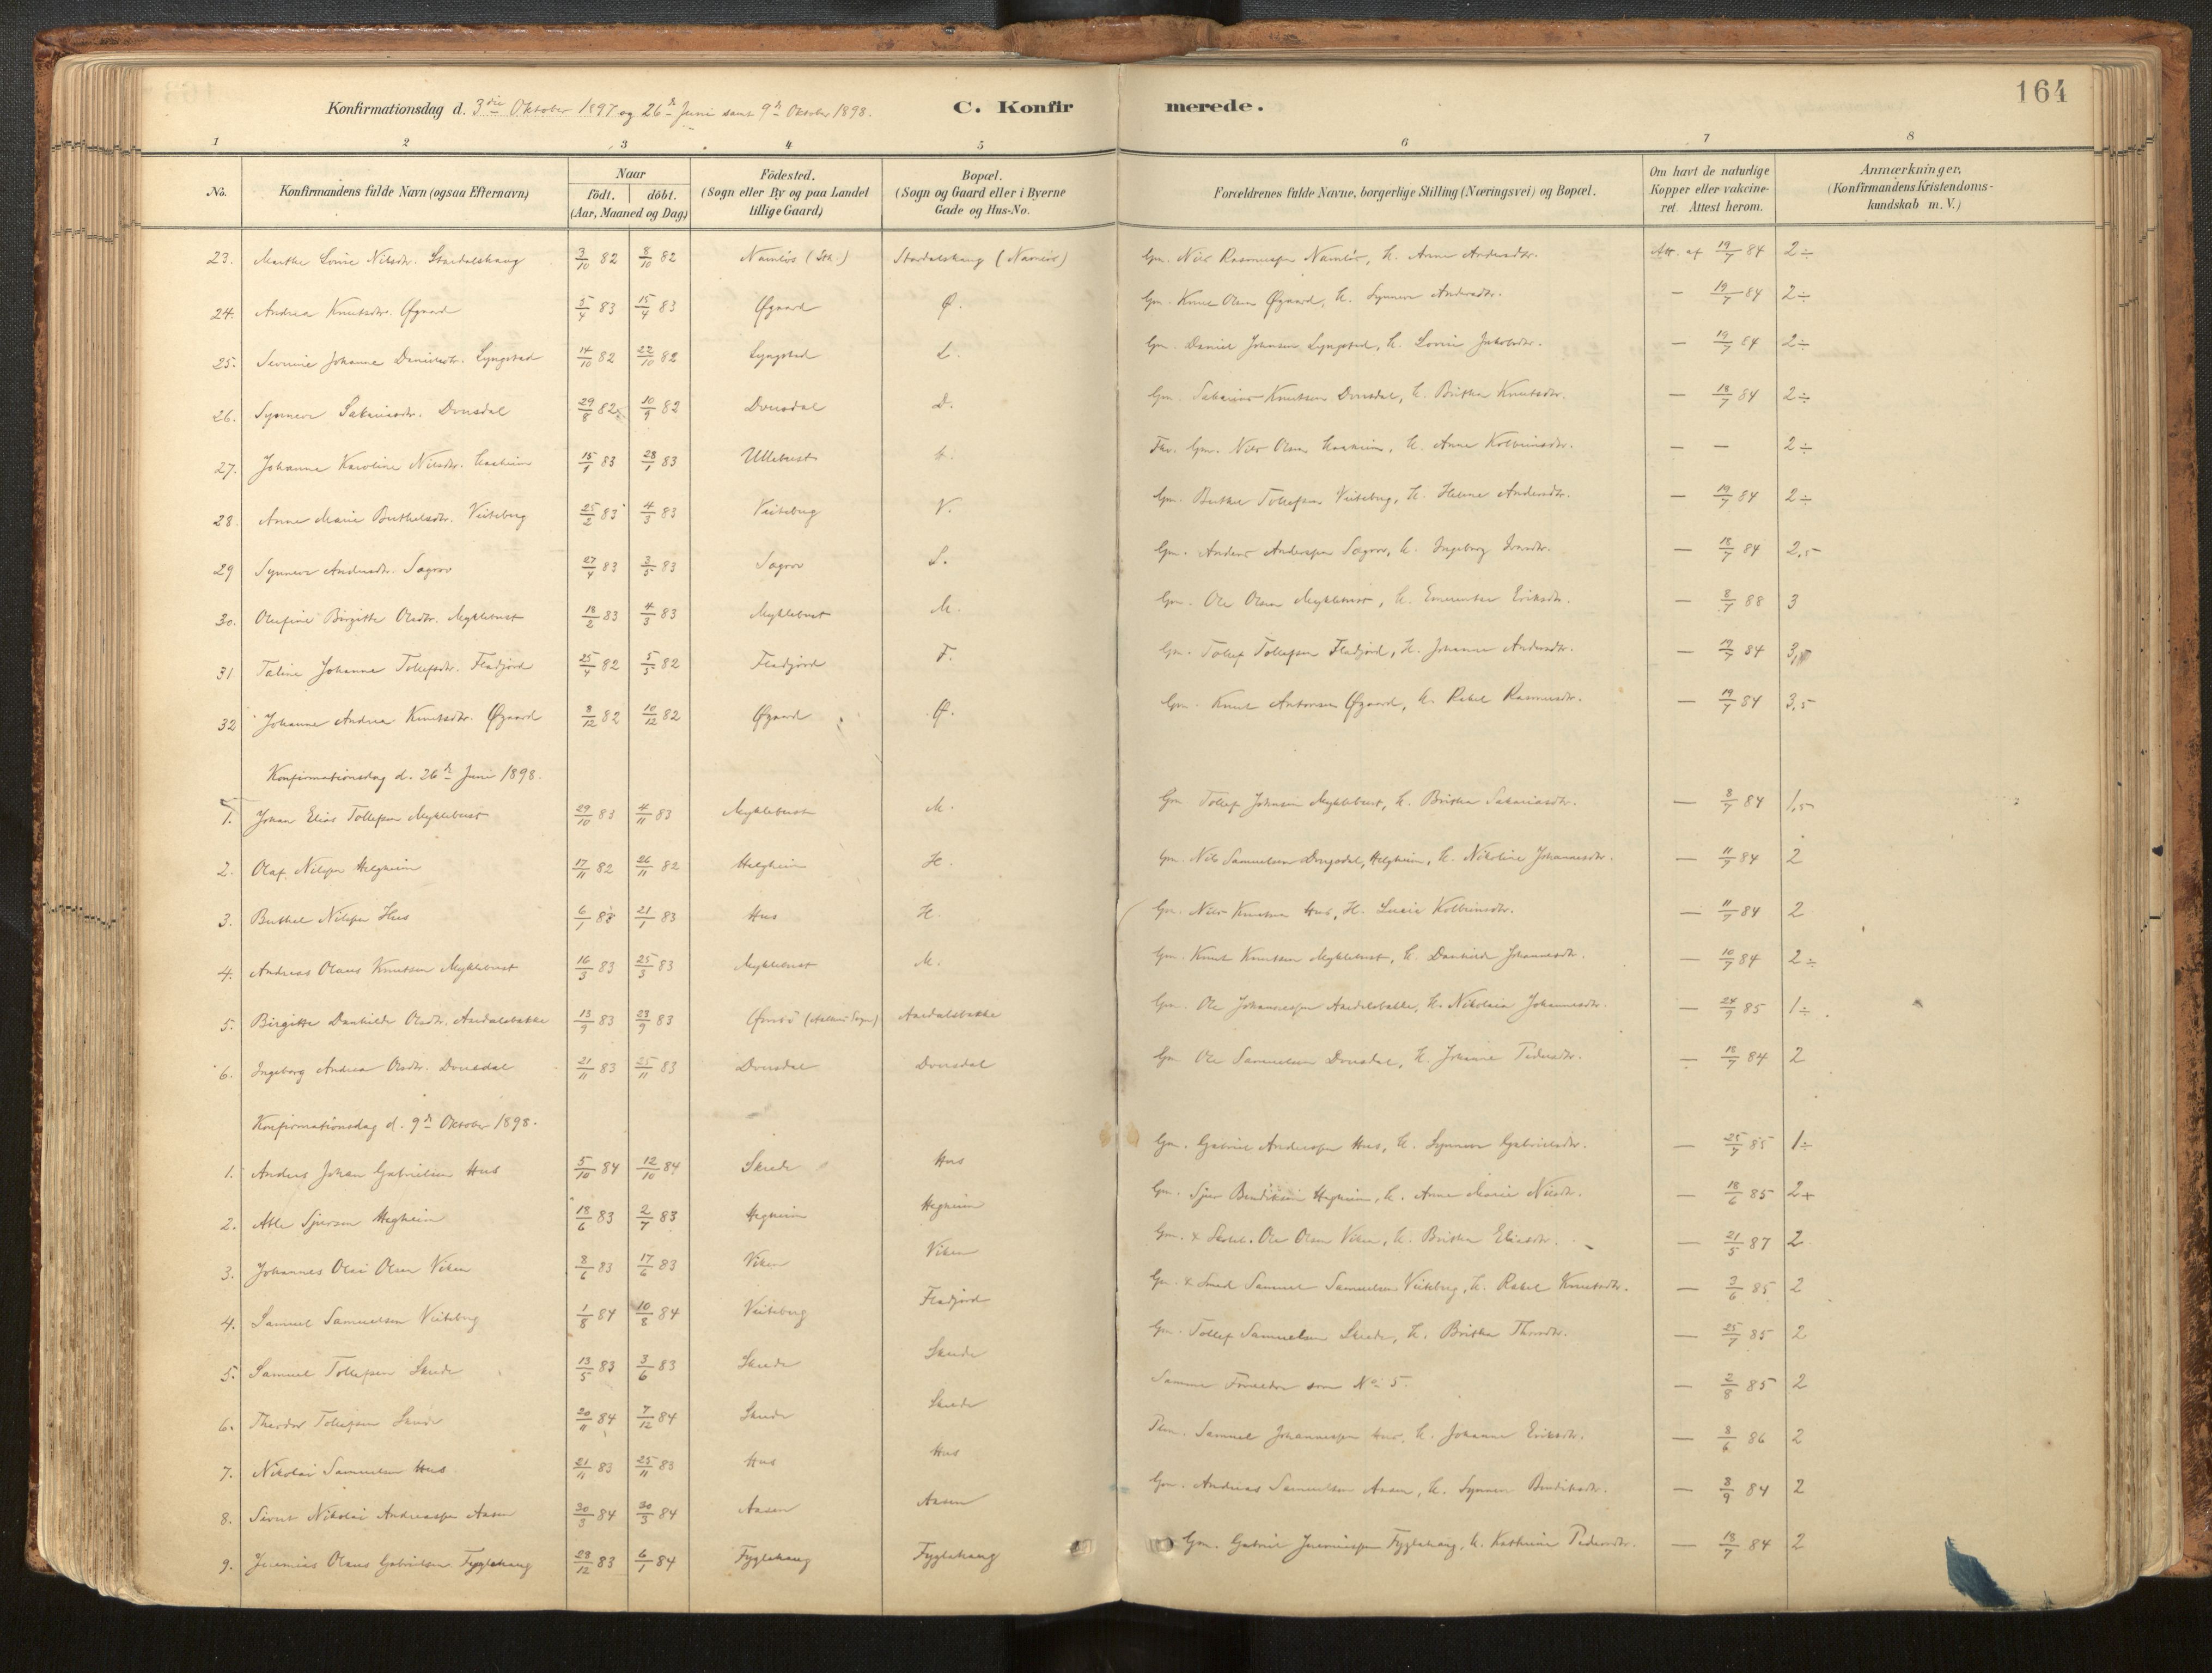 164
Konfirmationsdag d. 3die Oktober 1897 og 26de Juni samt 9de Oktober 1898. C. Konfir merede.
1 2 3 4 5 6 7 8
No. Konfirmandens fulde Navn (ogsaa Efternavn) Naar født. døbt. (Aar, Maaned og Dag) Fødested. (Sogn eller By og paa Landet tillige Gaard) Bopæl. (Sogn og Gaard eller i Byerne Gade og Hus-No. Forældrenes fulde Navne, borgerlige Stilling (Næringsvei) og Bopæl. Om havt de naturlige Kopper eller vakcineret. Attest herom. Anmærkninger. (Konfirmandens Kristendomskundskab m. V.)
23. Marthe Lovise Nilsdtr. Stardalshaug 3/10 82 8/10 82 Namløs Stardalshaug (Namløs) Gm. Nils Rasmussen Namløs, H. Anne Andersdtr. Att. af 19/7 84 2÷
24. Andrea Knutsdtr. Øgaard 5/4 83 15/4 83 Øgaard Ø. Gm. Knut Olsen Øgaard, H. Synneve Andersdtr. — 19/7 84 2÷
25. Severine Johanne Danielsdtr. Lyngstad 14/10 82 22/10 82 Lyngstad L. Gm. Daniel Johnsen Lyngstad, H. Lovise Jakobsdtr. — 19/7 84 2÷
26. Synneve Sakariasdtr. Dvusdal 29/8 82 10/9 82 Dvusdal D. Gm. Sakarias Knutsen Dvusdal, H. Britha Knutsdtr. — 18/7 84 2÷
27. Johanna Karoline Nilsdtr. 15/1 83 28/1 83 Ullebust Gm. Nils Olsen H. Anne Kolbeinsdtr. — — 2÷
28. Anne Marie Berthelsdtr. Veiteberg 25/2 83 4/3 83 Veiteberg V. Gm. Berthel Tollefsen Veiteberg, H. Helene Andersdtr. — 19/7 84 2÷
29 Synneve Andersdtr. Sagrov 27/4 83 3/5 83 Sagrov S. Gm. Anders Anderssen Sagrov, H. Ingeborg Iversdtr. — 18/7 84 2,5
30. Olufine Birgitte Olsdtr. Myklebust 18/2 83 4/3 83 Myklebust M. Gm. Ole Olsen Myklebust, H. Emerentse Eriksdtr. — 8/7 88 3
31 Taline Johanne Tollefsdtr. Fladjord 25/4 82 5/5 82 Fladjord F. Gm. Tollef Tollefsen Fladjord, H. Johanne Andersdtr. — 19/7 84 3,5
32 Johanne Andrea Knutsdtr. Øgaard 8/12 82 10/12 82 Øgaard Ø. Gm. Knut Antonsen Øgaard, H. Rakel Rasmusdtr. — 19/7 84 3,5
Konfirmationsdag d. 26de Juni 1898.
1. Johan Elias Tollefsen Myklebust 29/10 83 4/11 83 Myklebust M. Gm. Tollef Johnsen Myklebust, H. Britha Sakariasdtr. — 8/7 84 1,5
2. Olaf Nilssen Helgheim 17/11 82 26/11 82 Helgheim H. Gm. Nils Samuelsen Helgheim, H. Nikoline Johannesdtr. — 11/7 84 2
3. Berthel Nilssen Hus 6/1 83 21/1 83 Hus H. Gm. Nils Knutsen Hus, H. Lucie Kolbeinsdtr. — 11/7 84 2
4. Andreas Olaus Knutsen Myklebust 16/3 83 25/3 83 Myklebust M. Gm. Knut Knutsen Myklebust, H. Danhilde Johannesdtr. — 10/7 84 2÷
5. Birgitte Danhilde Olsdtr. Aardalsbakke 13/9 83 23/9 83 Aardalsbakke Gm. Ole Johannessen Aardalsbakke, H. Nikolaia Johannesdtr. — 24/9 85 1÷
6. Ingeborg Andrea Olsdtr. Dvusdal 21/11 83 25/11 83 Dvusdal Dvusdal Gm. Ole Samuelsen Dvusdal, H. Johanne Pedersdtr. — 18/7 84 2
Konfirmationsdag d. 9de Oktober 1898.
1. Anders Johan Gabrielsen Hus 5/10 84 12/10 84 Skrede Hus Gm. Gabriel Anderssen Hus, H. Synneve Gabrielsdtr. — 25/7 85 1÷
2. Atle Sjursen Hegheim 18/6 83 2/7 83 Hegheim Hegheim Gm. Sjur Bendiksen Hegheim, H. Anne Marie Nilsdtr. — 18/6 85 2+
3. Johannes Olai Olsen Viken 8/6 83 17/6 83 Viken Viken Gm. & Ole Olsen Viken, H. Britha Eliasdtr. — 21/5 87 2
4. Samuel Samuelsen Veiteberg 1/8 84 10/8 84 Veiteberg Fladjord Gm. & Smed Samuel Samuelsen Veiteberg, H. Rakel Knutsdtr. — 3/6 85 2
5. Samuel Tollefsen Skrede 13/5 83 3/6 83 Skrede Skrede Gm. Tollef Samuelsen Skrede, H. Britha — 25/7 85 2
6. Theodor Tollefsen Skrede 20/11 84 7/12 84 Skrede Skrede Samme Forældre som No 5. — 2/8 85 2
7. Nikolai Samuelsen Hus 21/11 83 25/11 83 Hus Hus Plm. Samuel Johannessen Hus, H. Johanne Eriksdtr. — 8/6 86 2
8. Sivert Nikolai Andreassen Aasen 30/3 84 30/3 84 Aasen Aasen Gm. Andreas Samuelsen Aasen, H. Synneve Bendiksdtr. — 8/9 84 2
9. Jeremias Olaus Gabrielsen Fyglehaug 28/12 83 6/1 84 Fyglehaug Fyglehaug Gm. Gabriel Jeremiassen Fyglehaug, H. Kathrine Pedersdtr. — 18/7 84 2